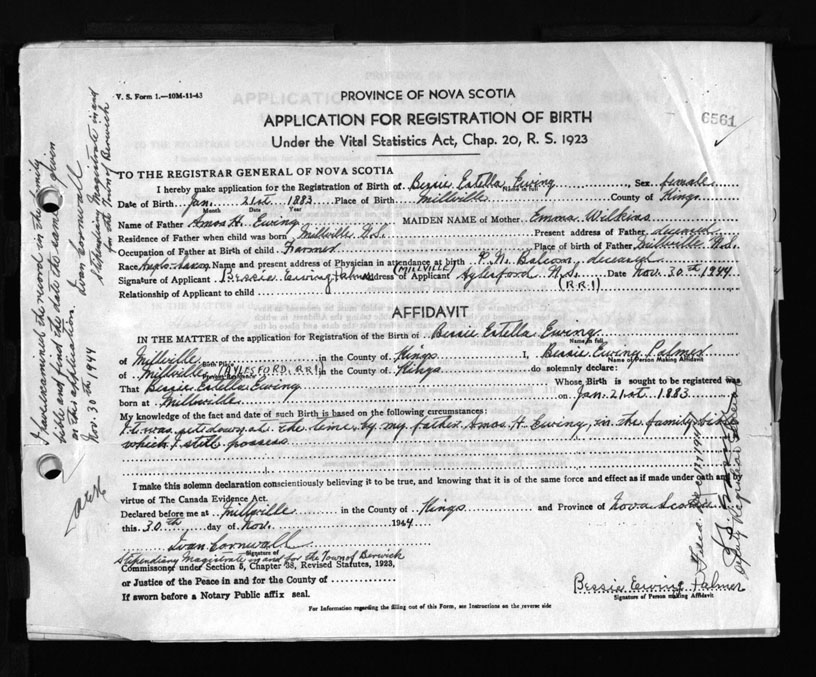 V. S. Form 1.—10M-11-43
PROVINCE OF NOVA SCOTIA
APPLICATION FOR REGISTRATION OF BIRTH
Under the Vital Statistics Act, Chap. 20, R. S. 1923
6561
TO THE REGISTRAR GENERAL OF NOVA SCOTIA
I hereby make application for the Registration of Birth of Bessie Estella Ewing, Sex female
Name in full
Date of Birth Jan. 21st 1883 Place of Birth Millville County of Kings
Month Date Year
Name of Father Amos H. Ewing MAIDEN NAME of Mother Emma Wilkins
Residence of Father when child was born Millville N.S. Present address of Father deceased
Occupation of Father at Birth of child Farmer Place of birth of Father Millville N.S.
Race Anglo-Saxon Name and present address of Physician in attendance at birth P. N. Balcom, deceased
Signature of Applicant Bessie Ewing Palmer Address of Applicant (MILLVILLE) Aylesford N.S. Date Nov. 30th 1944
Relationship of Applicant to child (R.R.1)
AFFIDAVIT
IN THE MATTER of the application for Registration of the Birth of Bessie Estella Ewing
Name in full
of Millville in the County of Kings I, Bessie Ewing Palmer
Birth Place Name of Person Making Affidavit
of Millville (AYLESFORD, R.R.1) in the County of Kings do solemnly declare:
That Bessie Estella Ewing Whose Birth is sought to be registered was
born at Millville on Jan. 21st 1883
My knowledge of the fact and date of such Birth is based on the following circumstances:
It was set down at the time, by my father Amos H. Ewing, in the family bible
which I still possess
I make this solemn declaration conscientiously believing it to be true, and knowing that it is of the same force and effect as if made under oath and
virtue of The Canada Evidence Act.
Declared before me at Millville in the County of Kings and Province of Nova Scotia
this 30th day of Nov. 1944
Ivan Cornwall
Signature of
Stipendiary Magistrate in and for the Town of Berwick
Commissioner under Section 5, Chapter 38, Revised Statutes, 1923,
or Justice of the Peace in and for the County of
If sworn before a Notary Public affix seal.
Bessie Ewing Palmer
Signature of Person making Affidavit
For Information regarding the filling out of this Form, see Instructions on the reverse side
I have examined the record in the family
bible and find the date the same as given
on this application
Ivan Cornwall
Stipendiary Magistrate in and
for the Town of Berwick
Nov. 30th 1944
Deputy Registrar General